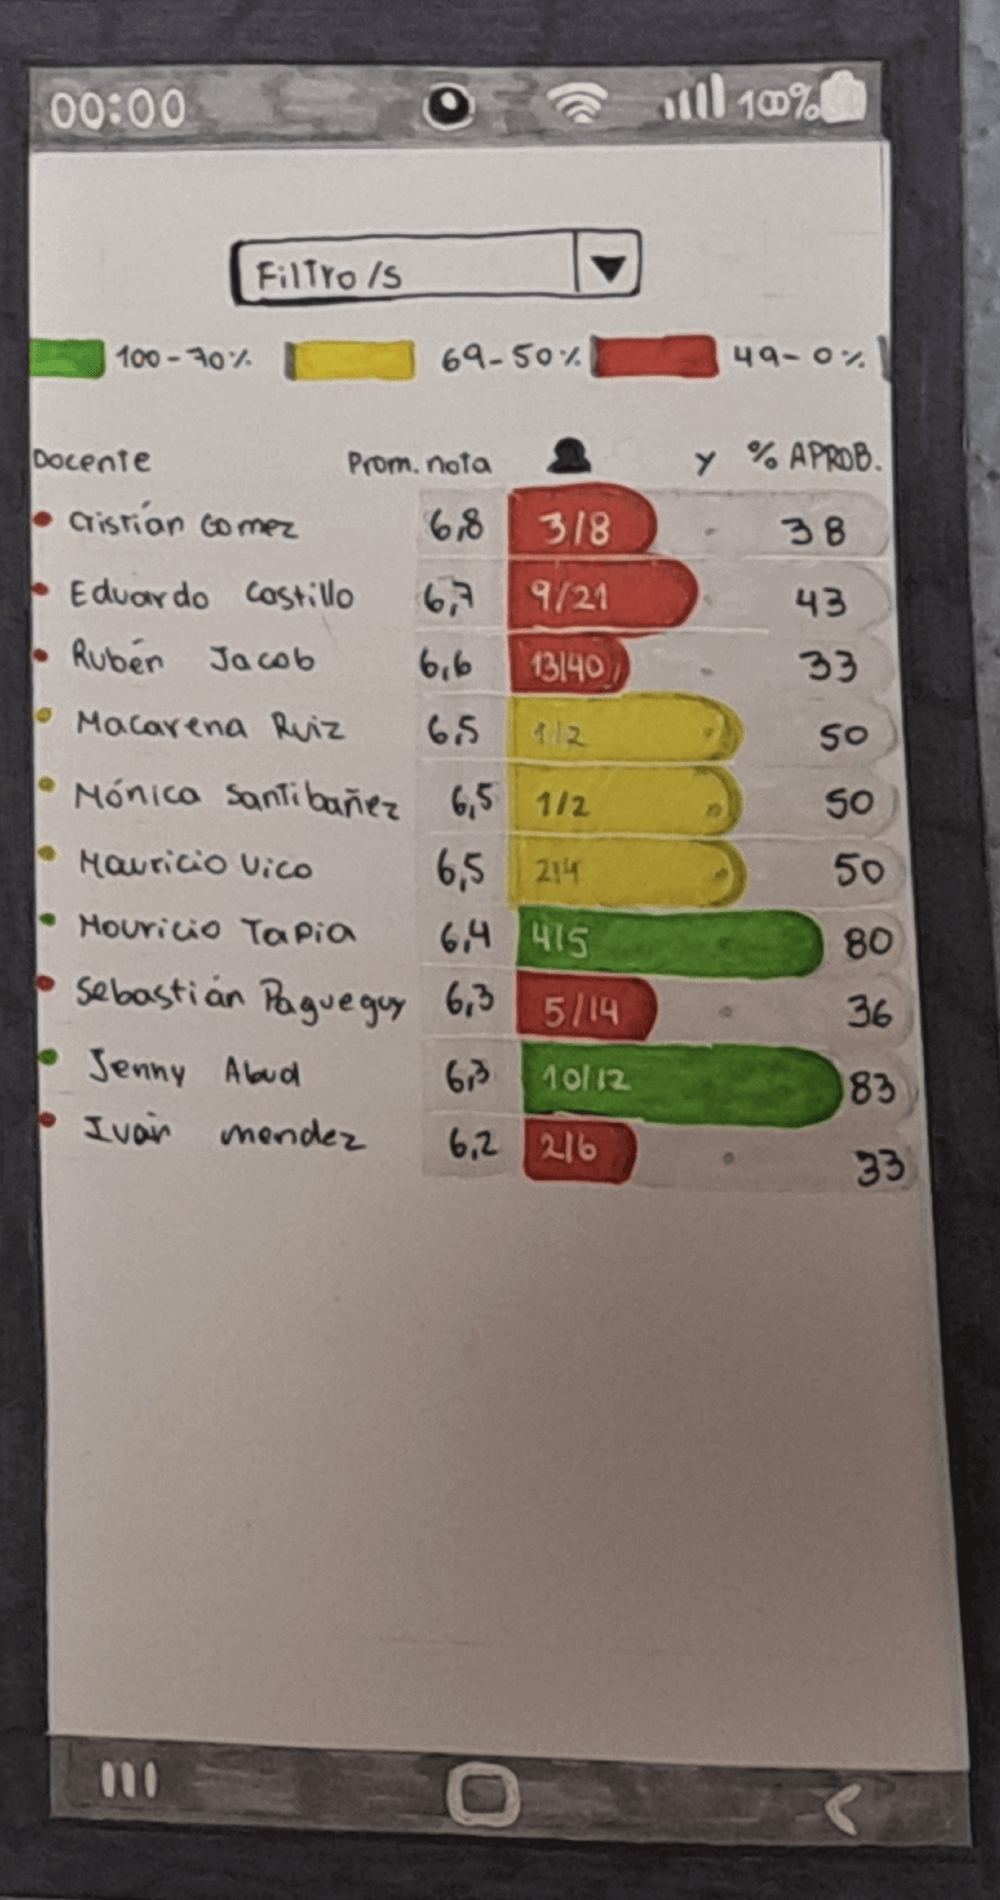 00:00 100%
Filtro/s
100-70% 69-50% 49-0%
Docente Prom. nota y % APROB.
Cristián Gomez 6,8 3/8 38
Eduardo Castillo 6,7 9/21 43
Rubén Jacob 6,6 13/40 33
Macarena Ruiz 6,5 1/2 50
Mónica Santibañez 6,5 1/2 50
Mauricio Vico 6,5 2/4 50
Mouricio Tapia 6,4 4/5 80
Sebastián Pagueguy 6,3 5/14 36
Jenny Abud 6,3 10/12 83
Iván mendez 6,2 2/6 33